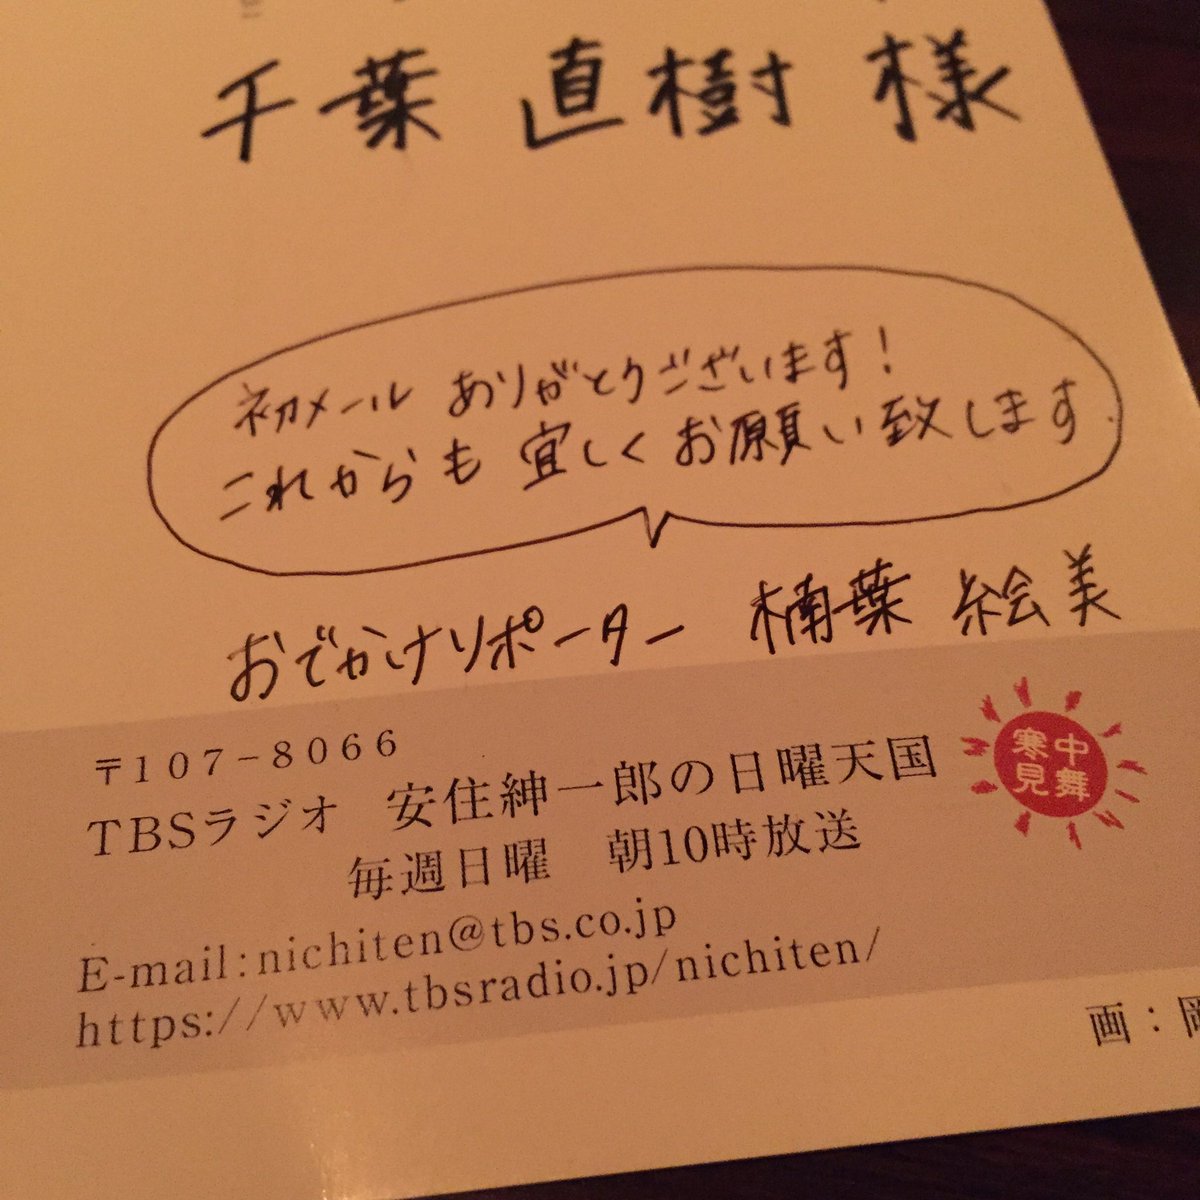 千葉 直樹 様
初メール ありがとうございます!
これからも 宜しくお願い致します
おでかけリポーター 楠葉 絵美
〒107-8066
TBSラジオ 安住紳一郎の日曜天国
毎週日曜 朝10時放送
E-mail:nichiten@tbs.co.jp
https://www.tbsradio.jp/nichiten/
寒中
見舞
画:岡